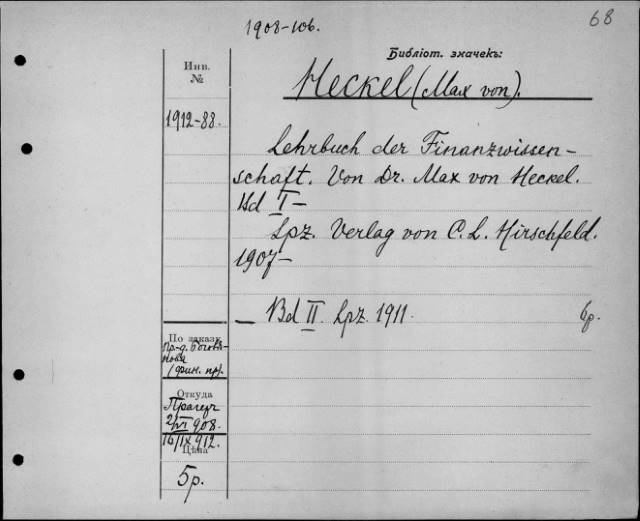 1908-106.
68
Библіот. значекъ:
Инв.
№
Heckel (Max von).
1912-88.
Lehrbuch der Finanzwissen-
schaft. Von Dr. Max von Heckel.
Bd I –
Lpz. Verlag von C. L. Hirschfeld.
1907 –
— Bd II Lpz. 1911. 6р.
По заказу
пр-д.
(фин. пр).
Откуда
Прагеръ
2/VI 908.
16/IX 912.
Цѣна
5р.